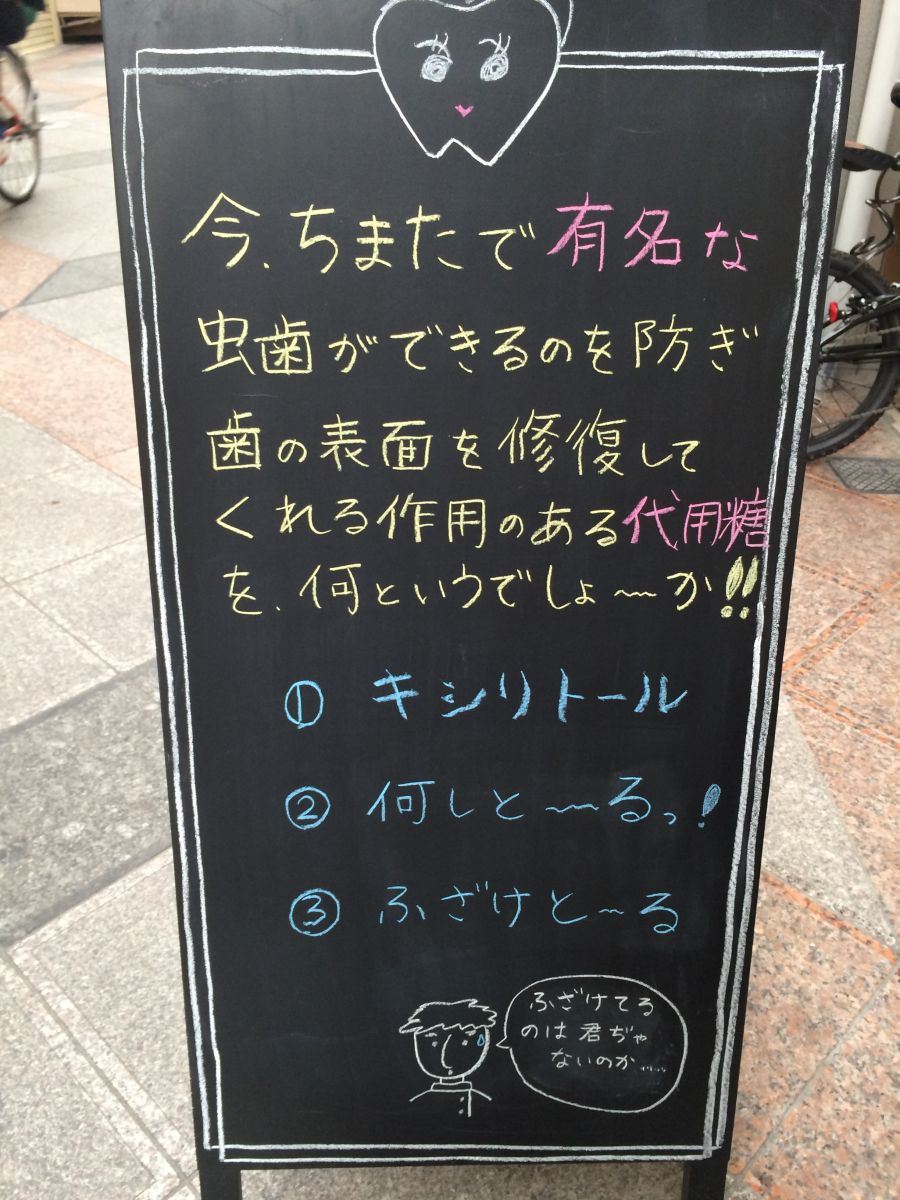 今、ちまたで有名な
虫歯ができるのを防ぎ
歯の表面を修復して
くれる作用のある代用糖
を、何というでしょ〜か!!
① キシリトール
② 何しと〜るっ!
③ ふざけと〜る
ふざけてる
のは君ぢゃ
ないのか……